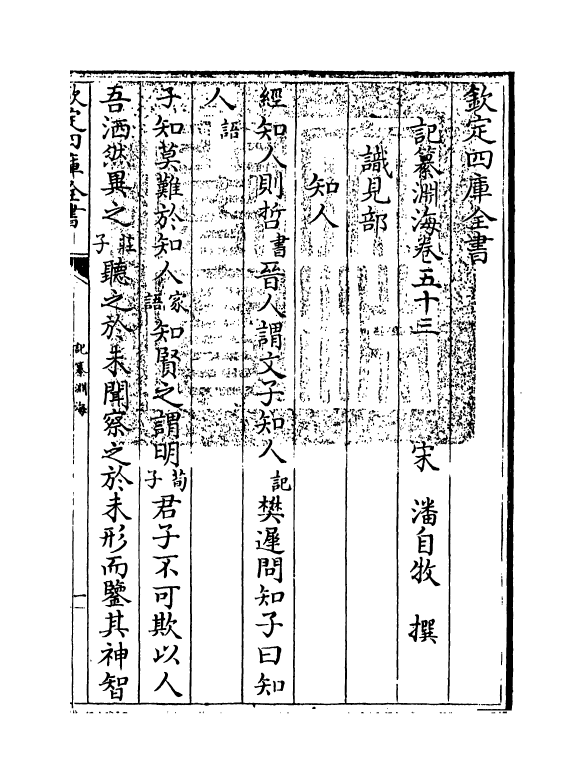 欽定四庫全書
記纂淵海卷五十三　宋　潘自牧　撰
識見部
知人
經知人則哲書晉人謂文子知人記樊遲問知子曰知
人語
子知莫難於知人家語知賢之謂明荀子君子不可欺以人
吾洒然異之莊子聽之於未聞察之於未形而鑒其神智
欽定四庫全書
記纂淵海
一